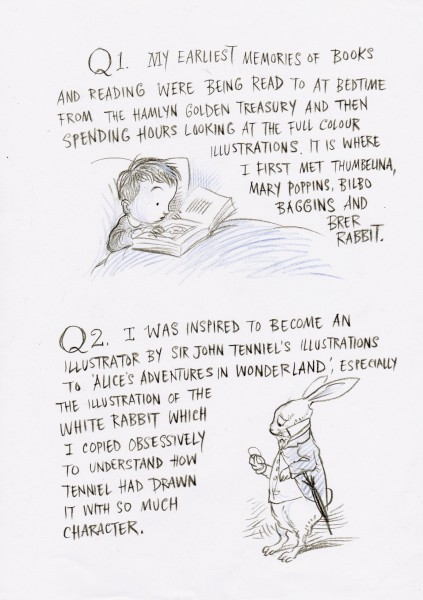 Q1. MY EARLIEST MEMORIES OF BOOKS
AND READING WERE BEING READ TO AT BEDTIME
FROM THE HAMLYN GOLDEN TREASURY AND THEN
SPENDING HOURS LOOKING AT THE FULL COLOUR
ILLUSTRATIONS. IT IS WHERE
I FIRST MET THUMBELINA,
MARY POPPINS, BILBO
BAGGINS AND
BRER
RABBIT.
Q2. I WAS INSPIRED TO BECOME AN
ILLUSTRATOR BY SIR JOHN TENNIEL'S ILLUSTRATIONS
TO 'ALICE'S ADVENTURES IN WONDERLAND', ESPECIALLY
THE ILLUSTRATION OF THE
WHITE RABBIT WHICH
I COPIED OBSESSIVELY
TO UNDERSTAND HOW
TENNIEL HAD DRAWN
IT WITH SO MUCH
CHARACTER.